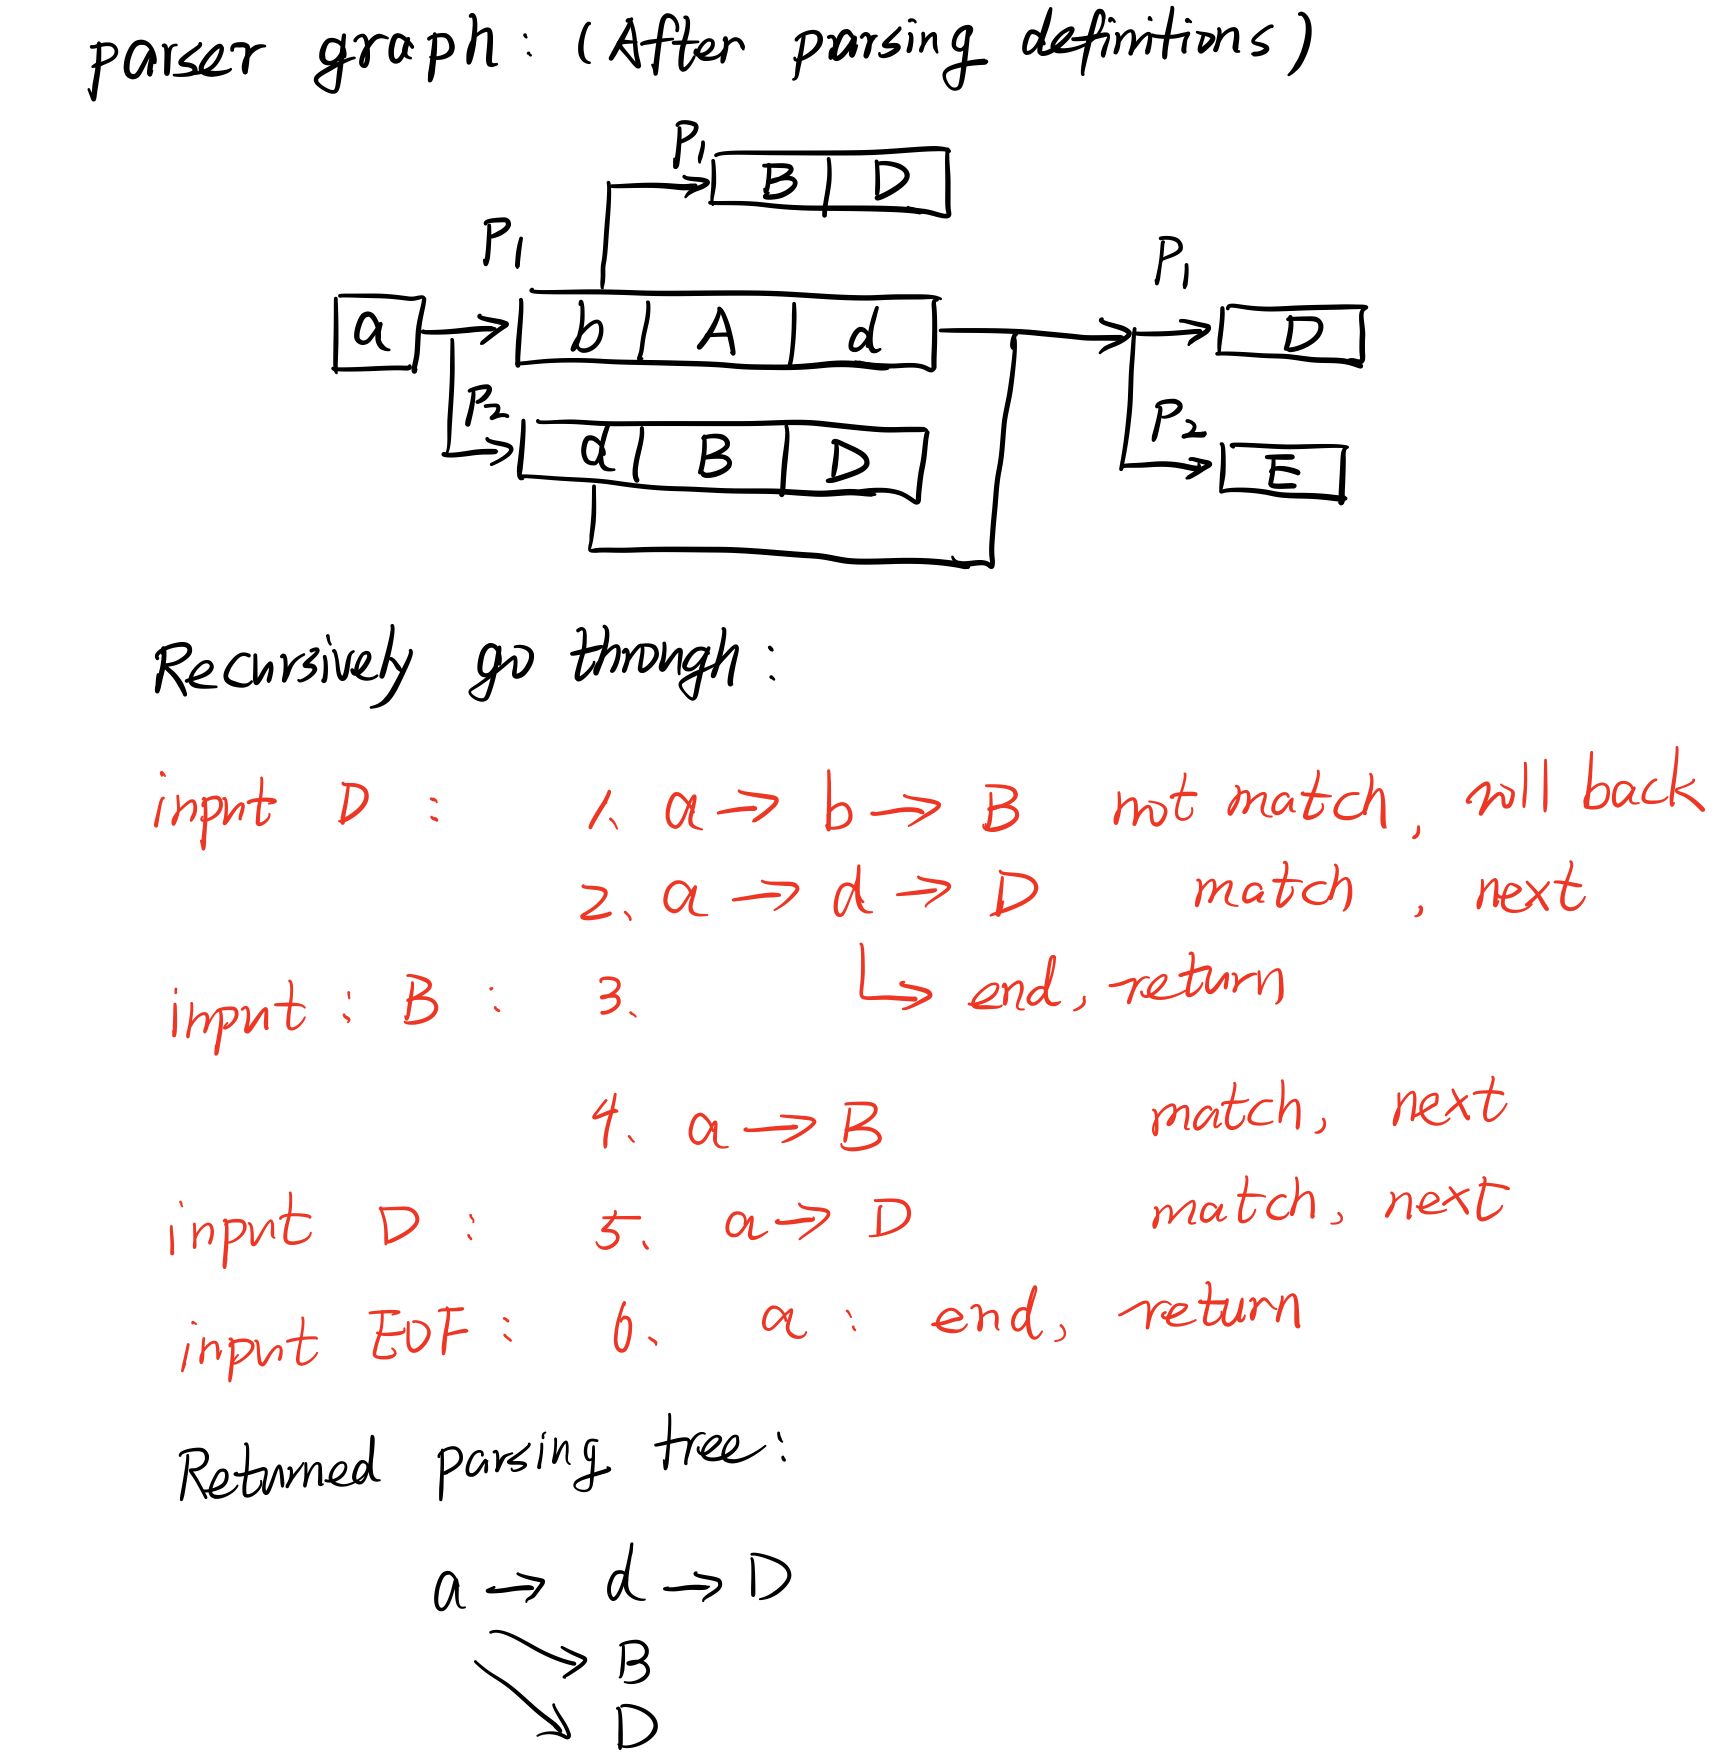 parser graph: (After parsing definitions)
P1
B D
P1
P1
a
b A d
D
P2
P2
d B D
E
Recursively go through:
input D : 1. a → b → B not match, roll back
2. a → d → D match, next
input : B : 3. ↳ end, return
4. a → B match, next
input D : 5. a → D match, next
input EOF : 6. a : end, return
Returned parsing tree:
a → d → D
B
D